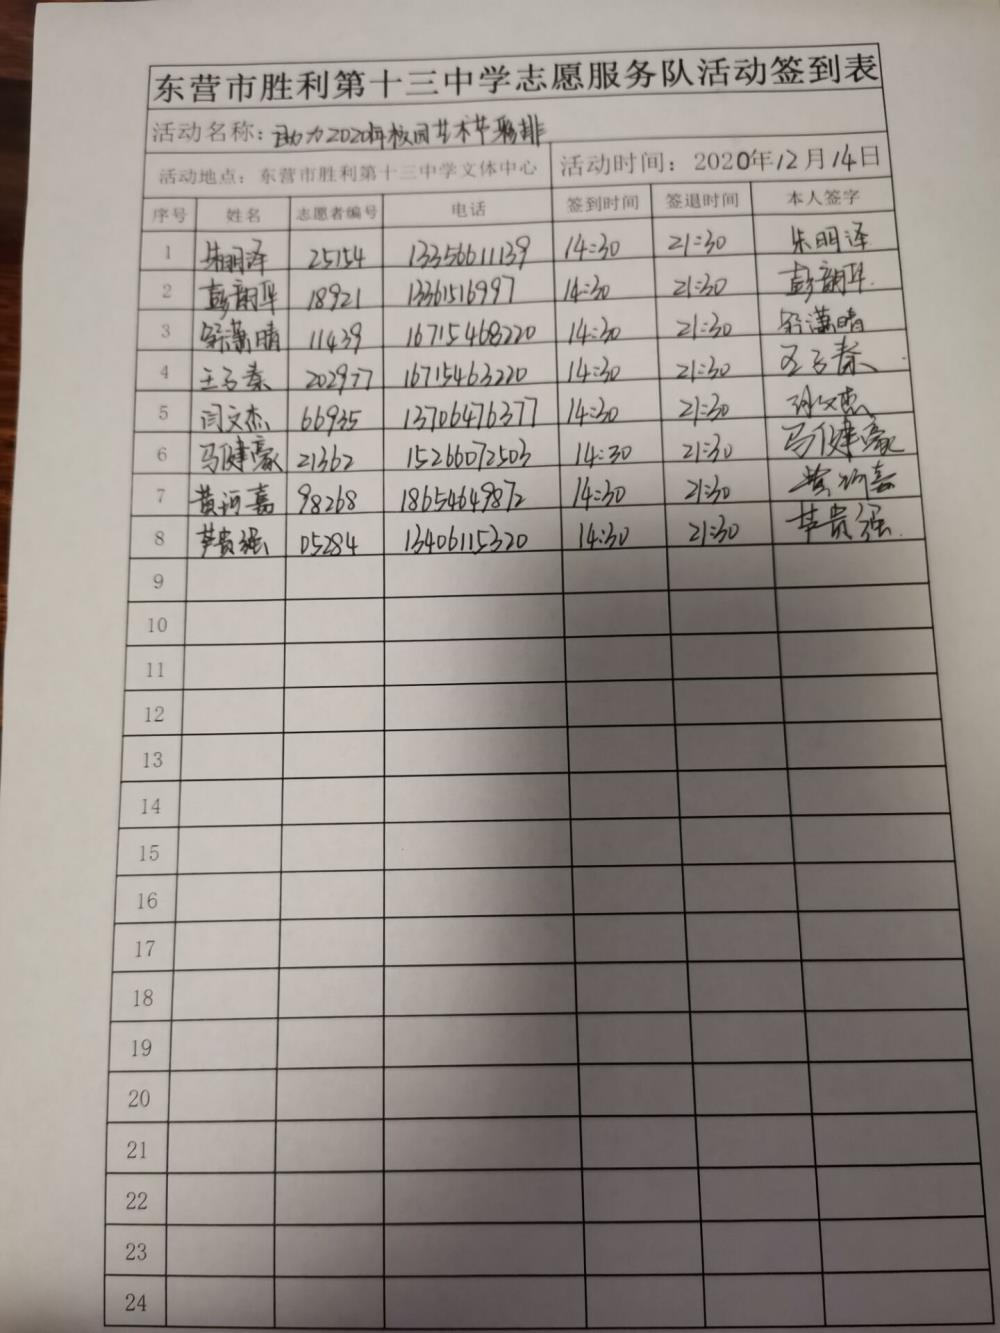 东营市胜利第十三中学志愿服务队活动签到表
活动名称：助力2020年校园艺术节彩排
活动地点：东营市胜利第十三中学文体中心 活动时间：2020年12月14日
序号 姓名 志愿者编号 电话 签到时间 签退时间 本人签字
1 朱明泽 25154 13356611139 14:30 21:30 朱明泽
2 彭韵华 18921 13361516997 14:30 21:30 彭韵华
3 潇晴 11439 16715468220 14:30 21:30 潇晴
4 王子秦 202977 16715463220 14:30 21:30 王子秦
5 闫文杰 66935 13706476377 14:30 21:30 闫文杰
6 马健豪 21362 15266072503 14:30 21:30 马健豪
7 黄河嘉 98268 18654649872 14:30 21:30 黄河嘉
8 贵强 05284 13406115320 14:30 21:30 贵强
9
10
11
12
13
14
15
16
17
18
19
20
21
22
23
24